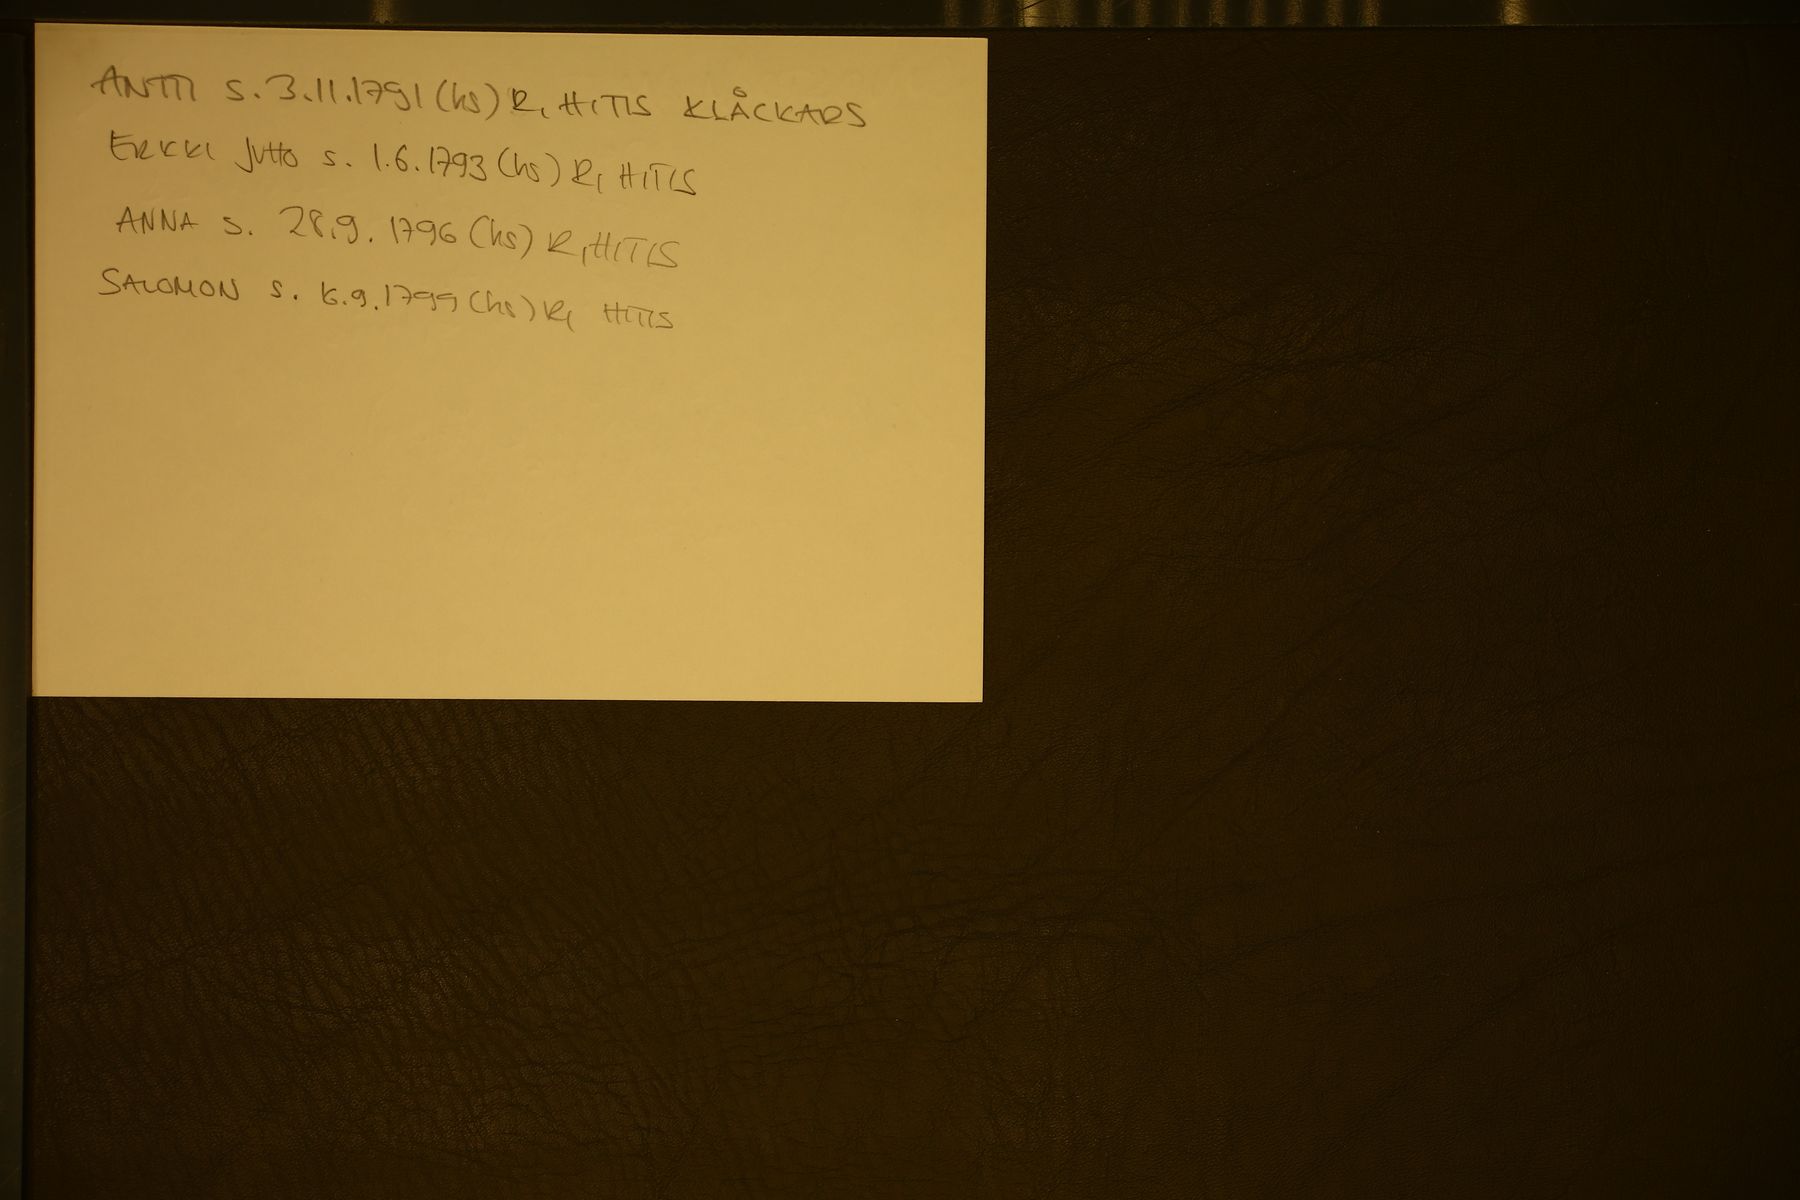 ANTTI s. 3.11.1791 (hs) R, HITIS KLÅCKARS
ERKKI JUHO s. 1.6.1793 (hs) R, HITIS
ANNA s. 28.9.1796 (hs) R, HITIS
SALOMON s. 6.9.1799 (hs) R, HITIS